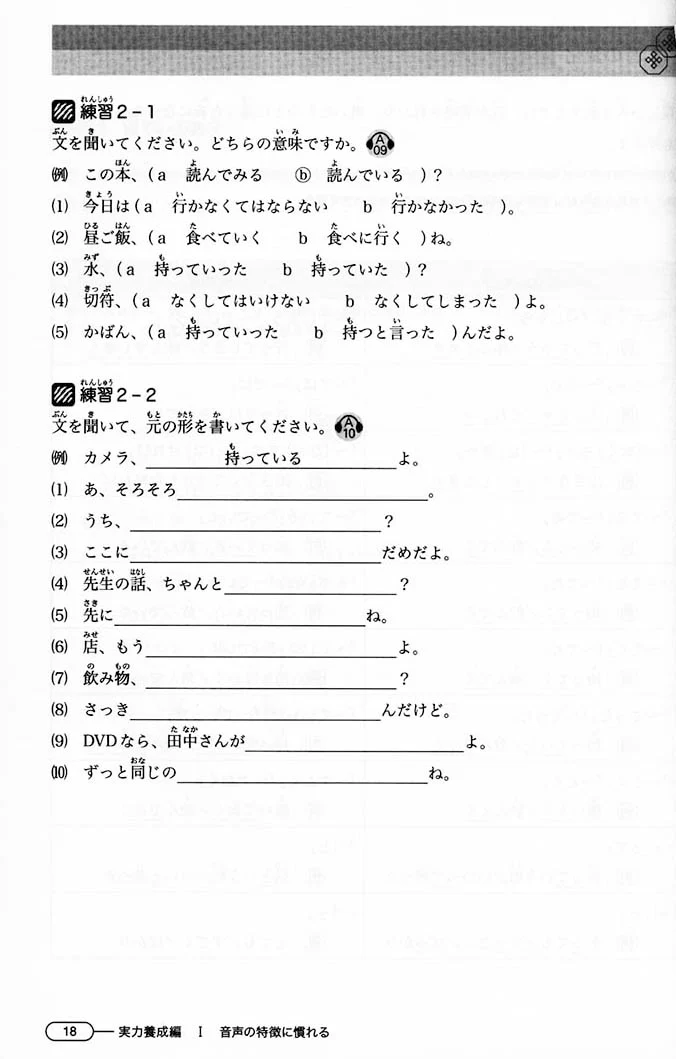 練習2-1
文を聞いてください。どちらの意味ですか。 A 09
例 この本、(a 読んでみる ⓑ 読んでいる )?
(1) 今日は(a 行かなくてはならない b 行かなかった )。
(2) 昼ご飯、(a 食べていく b 食べに行く )ね。
(3) 水、(a 持っていった b 持っていた )?
(4) 切符、(a なくしてはいけない b なくしてしまった )よ。
(5) かばん、(a 持っていった b 持つと言った )んだよ。
練習2-2
文を聞いて、元の形を書いてください。 A 10
例 カメラ、 持っている よ。
(1) あ、そろそろ 。
(2) うち、 ?
(3) ここに だめだよ。
(4) 先生の話、ちゃんと ?
(5) 先に ね。
(6) 店、もう よ。
(7) 飲み物、 ?
(8) さっき んだけど。
(9) DVDなら、田中さんが よ。
(10) ずっと同じの ね。
18 実力養成編 I 音声の特徴に慣れる